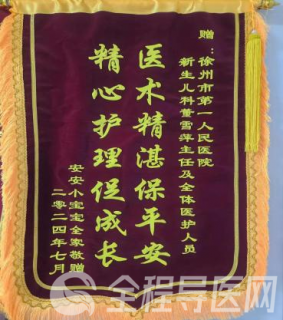 赠：徐州市第一人民医院
新生儿科董雪萍主任及全体医护人员
医术精湛保平安
精心护理促成长
安安小宝宝全家敬赠
二零二四年七月
全程导医网